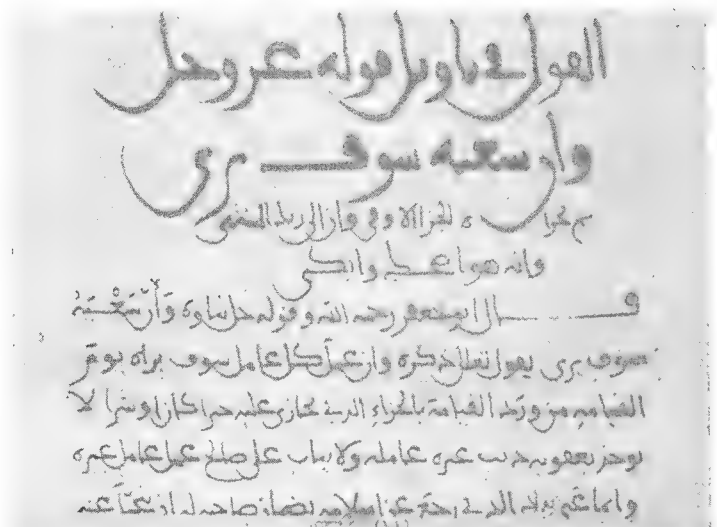 القول في تاويل قوله عز وجل
وان سعيه سوف يرى
ثم يجزاه الجزا الاوفى وان الى ربك المنتهى
وانه هو اضحك وابكى
قال ابو جعفر رحمه الله وقوله جل ثناوه وَأَنّ سَعْيَهُ
سوف يرى يقول تعالى ذكره وان عمل كل عامل سوف يراه يوم
القيامه من ورد القيامة بالجزاء الذي يجازى عليه خيرا كان او شرا لا
يوخذ بعقوبه ذنب غير عامله ولا يثاب على صالح عمل عامل غيره
وانما عُني بذلك الذي رجع عن اسلامه بضمان صاحبه له ان يتحمل عنه